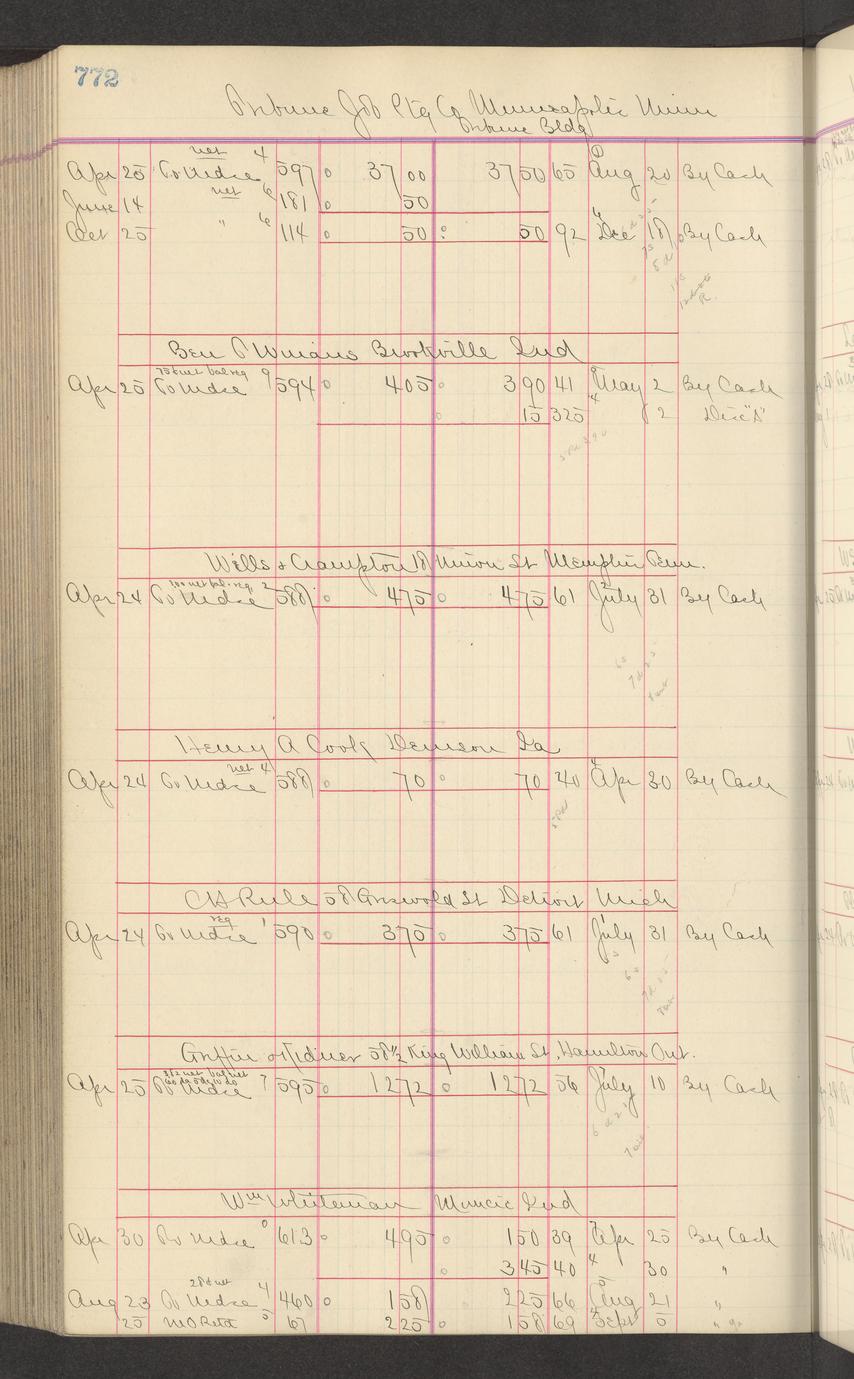 772
Tribune Job Ptg Co Minneapolis Minn
Tribune Bldg
net 4
Apr 25 To Mdse 597 37 00 37 50 65 Aug 20 By Cash
June 14 net 6 181 50
Oct 25 " 6 114 50 50 92 Dec 18 By Cash
Ben Winans Brookville Ind
75 net bal reg 9
Apr 25 To Mdse 594 405 390 41 May 2 By Cash
15 325 2 Disc "A"
Wills & Crampton 18 Union St Memphis Tenn.
300 net bal reg 2
Apr 24 To Mdse 588 475 475 61 July 31 By Cash
Henry A Cook Denison Ia
net 4
Apr 24 To Mdse 588 70 70 40 Apr 30 By Cash
CH Rule 58 Griswold St Detroit Mich
reg 1
Apr 24 To Mdse 590 375 375 61 July 31 By Cash
Griffin & Kidner 58 1/2 King William St, Hamilton Ont.
382 net bal net
Apr 25 To Mdse 7 595 1272 1272 56 July 10 By Cash
Wm Whiteman Muncie Ind
Apr 30 To Mdse 0 613 495 150 39 Apr 25 By Cash
345 40 30 "
28 net 4
Aug 23 To Mdse 460 158 225 66 Aug 21 "
25 MO Retd 5 67 225 158 69 Sept 5 "